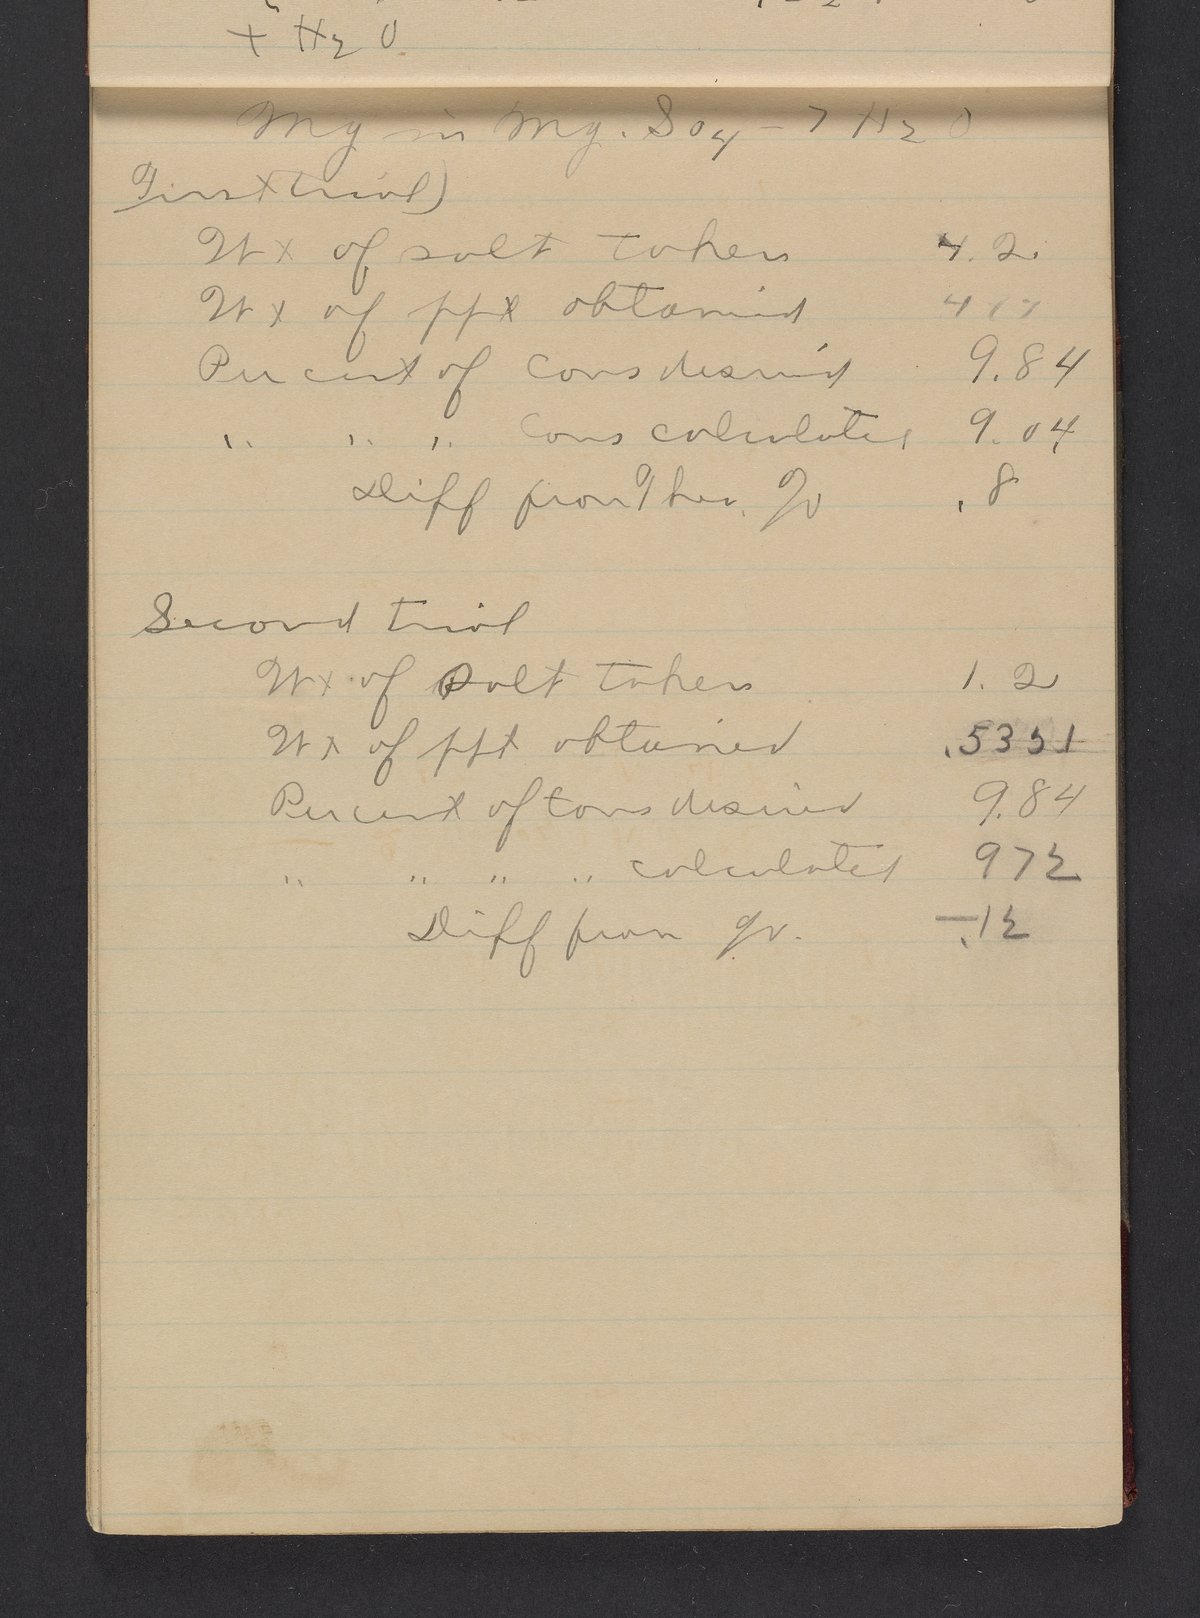 + H2 O
Mg in Mg. So4 - 7 H2 O
First trial)
Wt of salt taken 4. 2
Wt of ppt obtained
Percent of Cons desired 9.84
" " " Cons calculated 9.04
Diff from Theo. % .8
Second trial
Wt of salt taken 1. 2
Wt of ppt obtained .5351
Percent of Cons desired 9.84
" " " " calculated 972
Diff from %. -.12